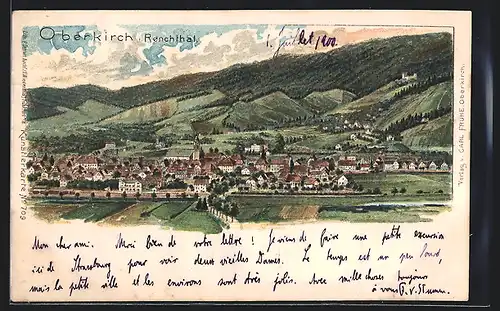 Oberkirch (Renchthal.
1. Juillet 1900.
Künstlerkarte No 709
Verlag - CARL FRÜHE Oberkirch.
Mon cher ami. Merci bien de votre lettre ! Je viens de faire une petite excursion
ici de Strasbourg pour voir deux vieilles Dames. Le temps est un peu froid,
mais la petite ville et les environs sont très jolis. Avec mille choses toujours
à vous